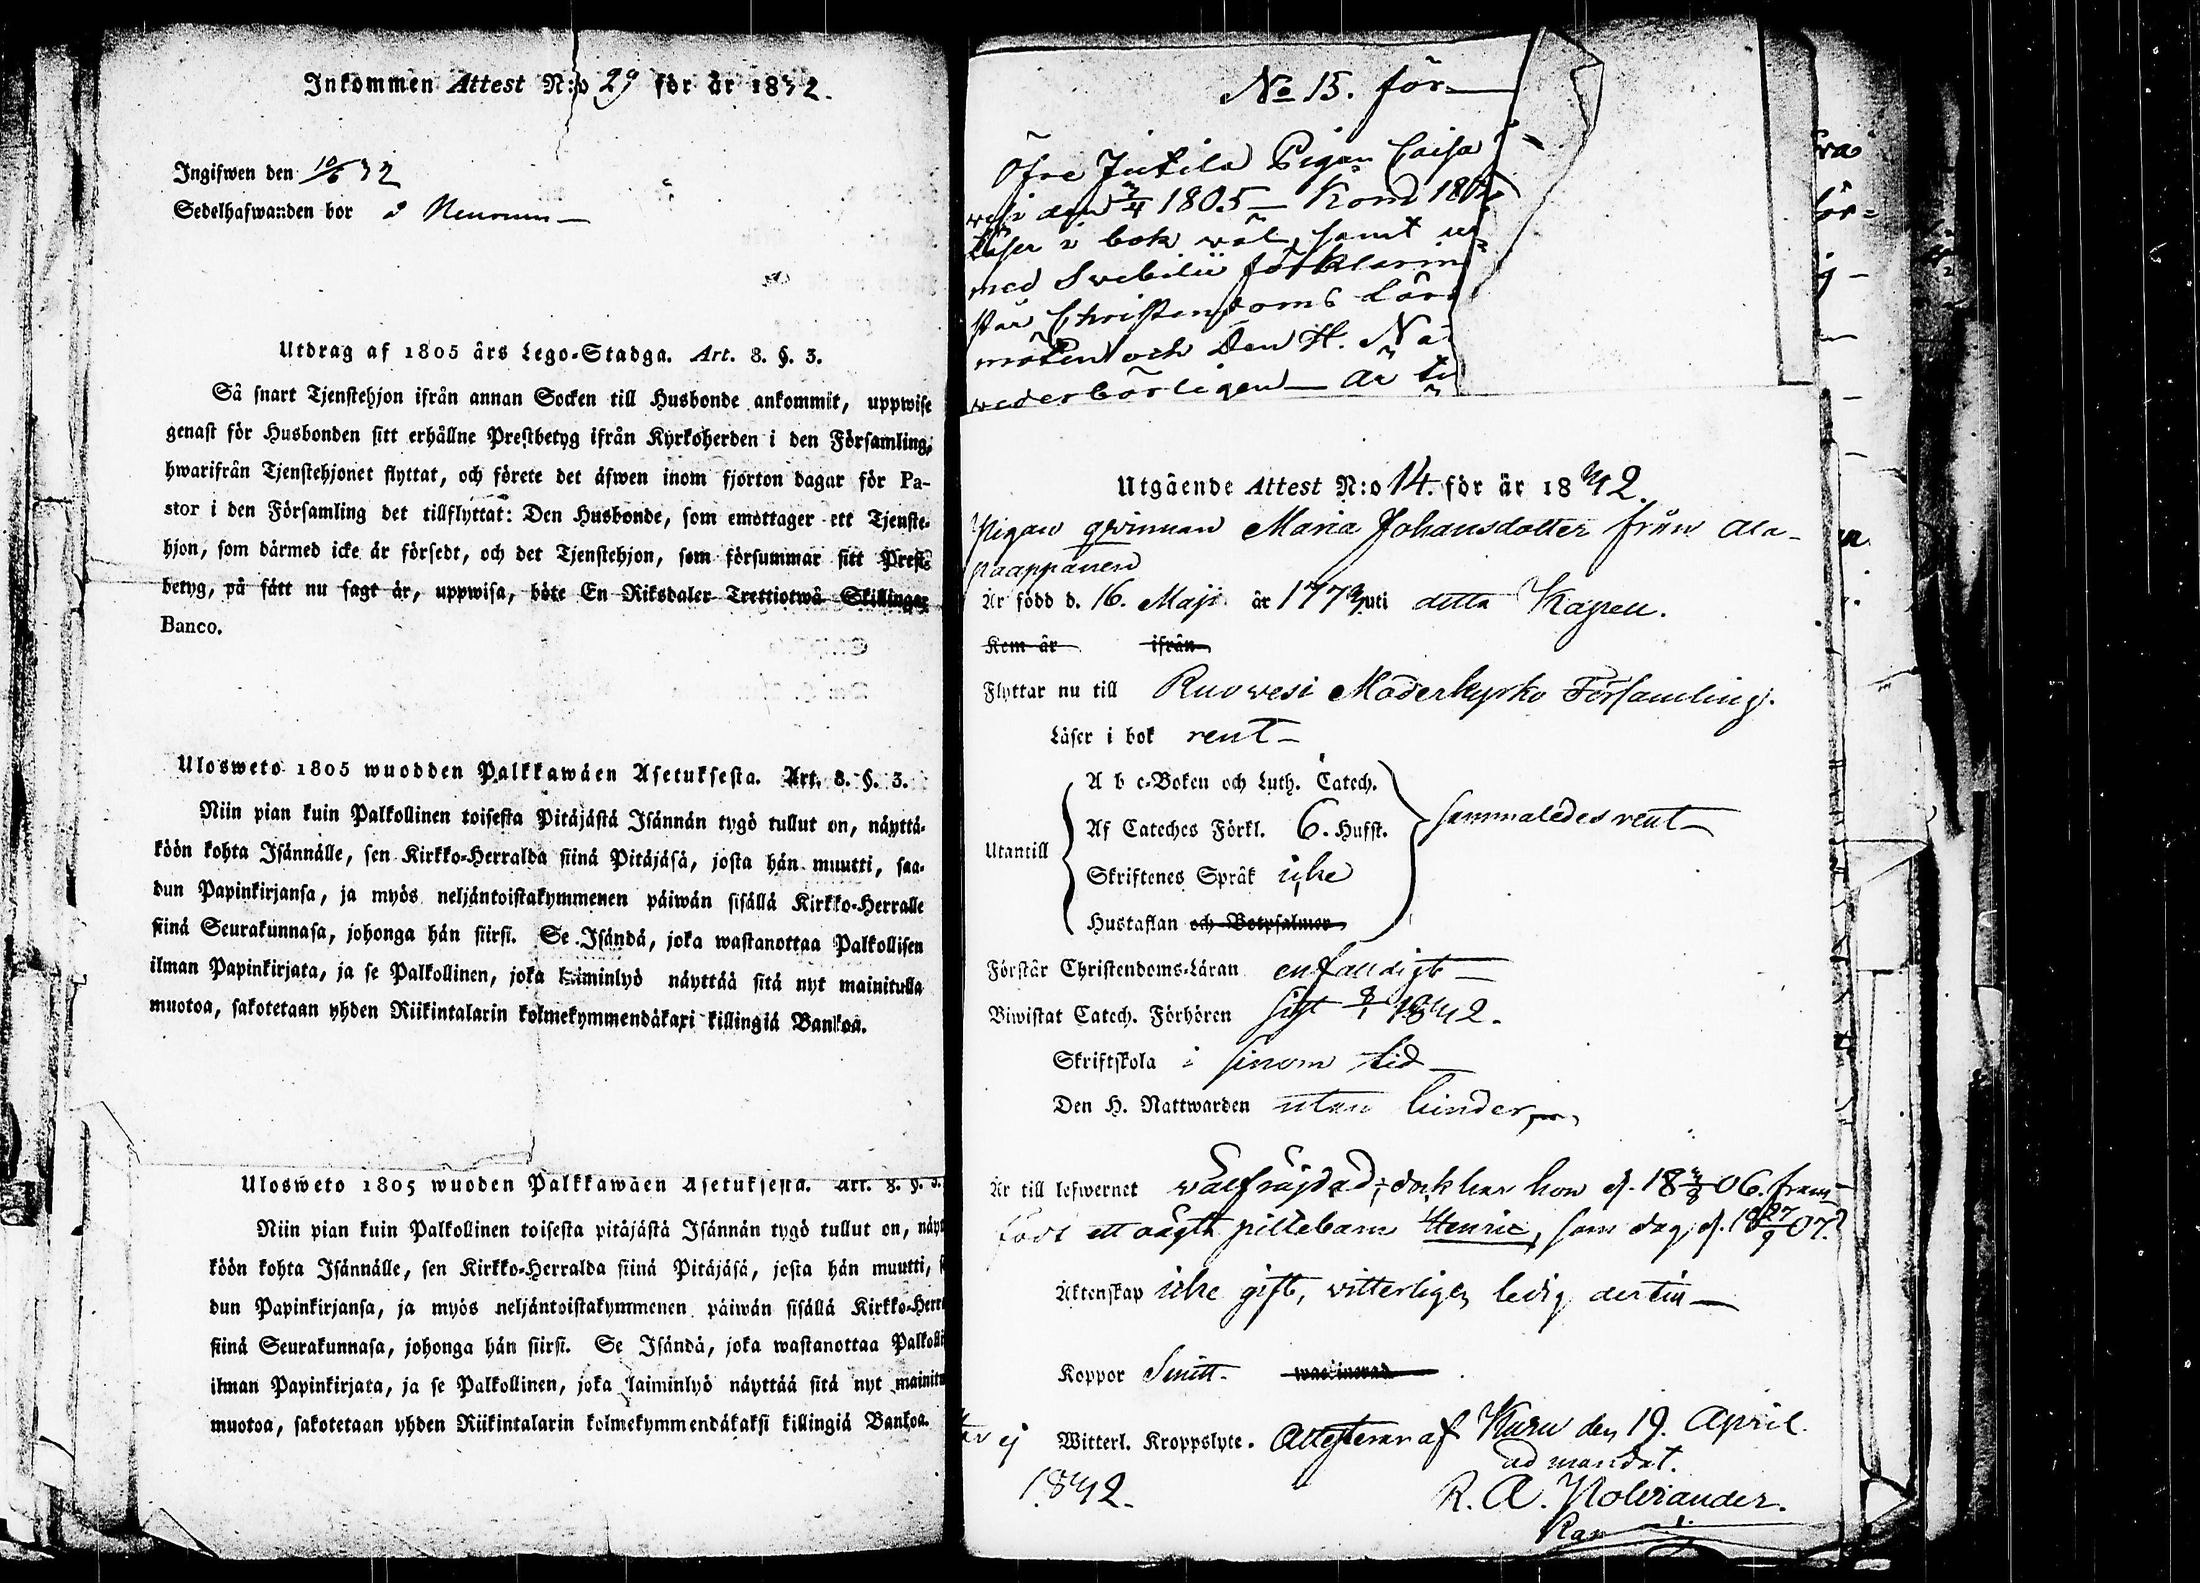 Inkommen Attest N:o 29 för år 1832.
Ingifwen den 10/6 32
Sedelhafwanden bor i
Utdrag af 1805 års Lego-Stadga. Art. 8. §. 3.
Så snart Tjenstehjon ifrån annan Socken till Husbonde ankommit, uppwise
genast för Husbonden sitt erhållne Prestbetyg ifrån Kyrkoherden i den Församling,
hwarifrån Tjenstehjonet flyttat, och förete det äfwen inom fjorton dagar för Pa-
stor i den Församling det tillflyttat: Den Husbonde, som emottager ett Tjenste-
hjon, som därmed icke är försedt, och det Tjenstehjon, som försummar sitt Prest-
betyg, på sätt nu sagt är, uppwisa, böte En Riksdaler Trettiotwå Skillingar
Banco.
Ulosweto 1805 wuodden Palkkawäen Asetuksesta. Art. 8. §. 3.
Niin pian kuin Palkollinen toisesta Pitäjästä Isännän tygö tullut on, näyttä-
köön kohta Isännälle, sen Kirkko-Herralda siinä Pitäjäsä, josta hän muutti, saa-
dun Papinkirjansa, ja myös neljäntoistakymmenen päiwän sisällä Kirkko-Herralle
siinä Seurakunnasa, johonga hän siirsi. Se Isändä, joka wastanottaa Palkollisen
ilman Papinkirjata, ja se Palkollinen, joka laiminlyö näyttää sitä nyt mainitulla
muotoa, sakotetaan yhden Riikintalarin kolmekymmendäkaxi killingiä Bankoa.
Ulosweto 1805 wuoden Palkkawäen Asetuksesta. Art. 8. §. 3.
Niin pian kuin Palkollinen toisesta pitäjästä Isännän tygö tullut on, näyt
köön kohta Isännälle, sen Kirkko-Herralda siinä Pitäjäsä, josta hän muutti, s
dun Papinkirjansa, ja myös neljäntoistakymmenen päiwän sisällä Kirkko-Herr
siinä Seurakunnasa, johonga hän siirsi. Se Isändä, joka wastanottaa Palkolli
ilman Papinkirjata, ja se Palkollinen, joka laiminlyö näyttää sitä nyt mainitu
muotoa, sakotetaan yhden Riikintalarin kolmekymmendäkaksi killingiä Bankoa.
No 15. för
Öfre Jutila Pigan Caisa
wesi den 3/4 1805 – Kom 18
läser i bok wäl, samt u
med Swebilii förklarin
står Christendoms Lär
möten och Den H. Na
wederbörligen – är ti
Utgående Attest N:o 14. för år 1842.
Pigan qwinnan Maria Johansdotter från Ala-
paappanen
Är född d. 16. Maji år 1773 uti detta Kapell.
Kom år ifrån
Flyttar nu till Ruowesi Moderkyrko Församling.
Läser i bok rent –
A b c-Boken och Luth. Catech.
Af Cateches Förkl. 6. Hufst. sammaledes rent –
Utantill
Skriftenes Språk icke
Hustaflan och Botpsalmer
Förstår Christendoms-Läran enfaldigt –
Biwistat Catech. Förhören sist 8/1 1842.
Skriftskola i sinom tid –
Den H. Nattwarden utan hinder,
Är till lefwernet wälfräjdad; dock har hon d. 18 3/8 06. fram-
födt ett oägta piltebarn Henric, som dog d. 18 27/9 07.
Äktenskap icke gift, witterligen ledig dertill –
Koppor Smitt. waccinerad
Har ej Witterl. Kroppslyte. Attesterar af Kuru den 19. April.
1842. ad mandat.
R. A. Molviander.